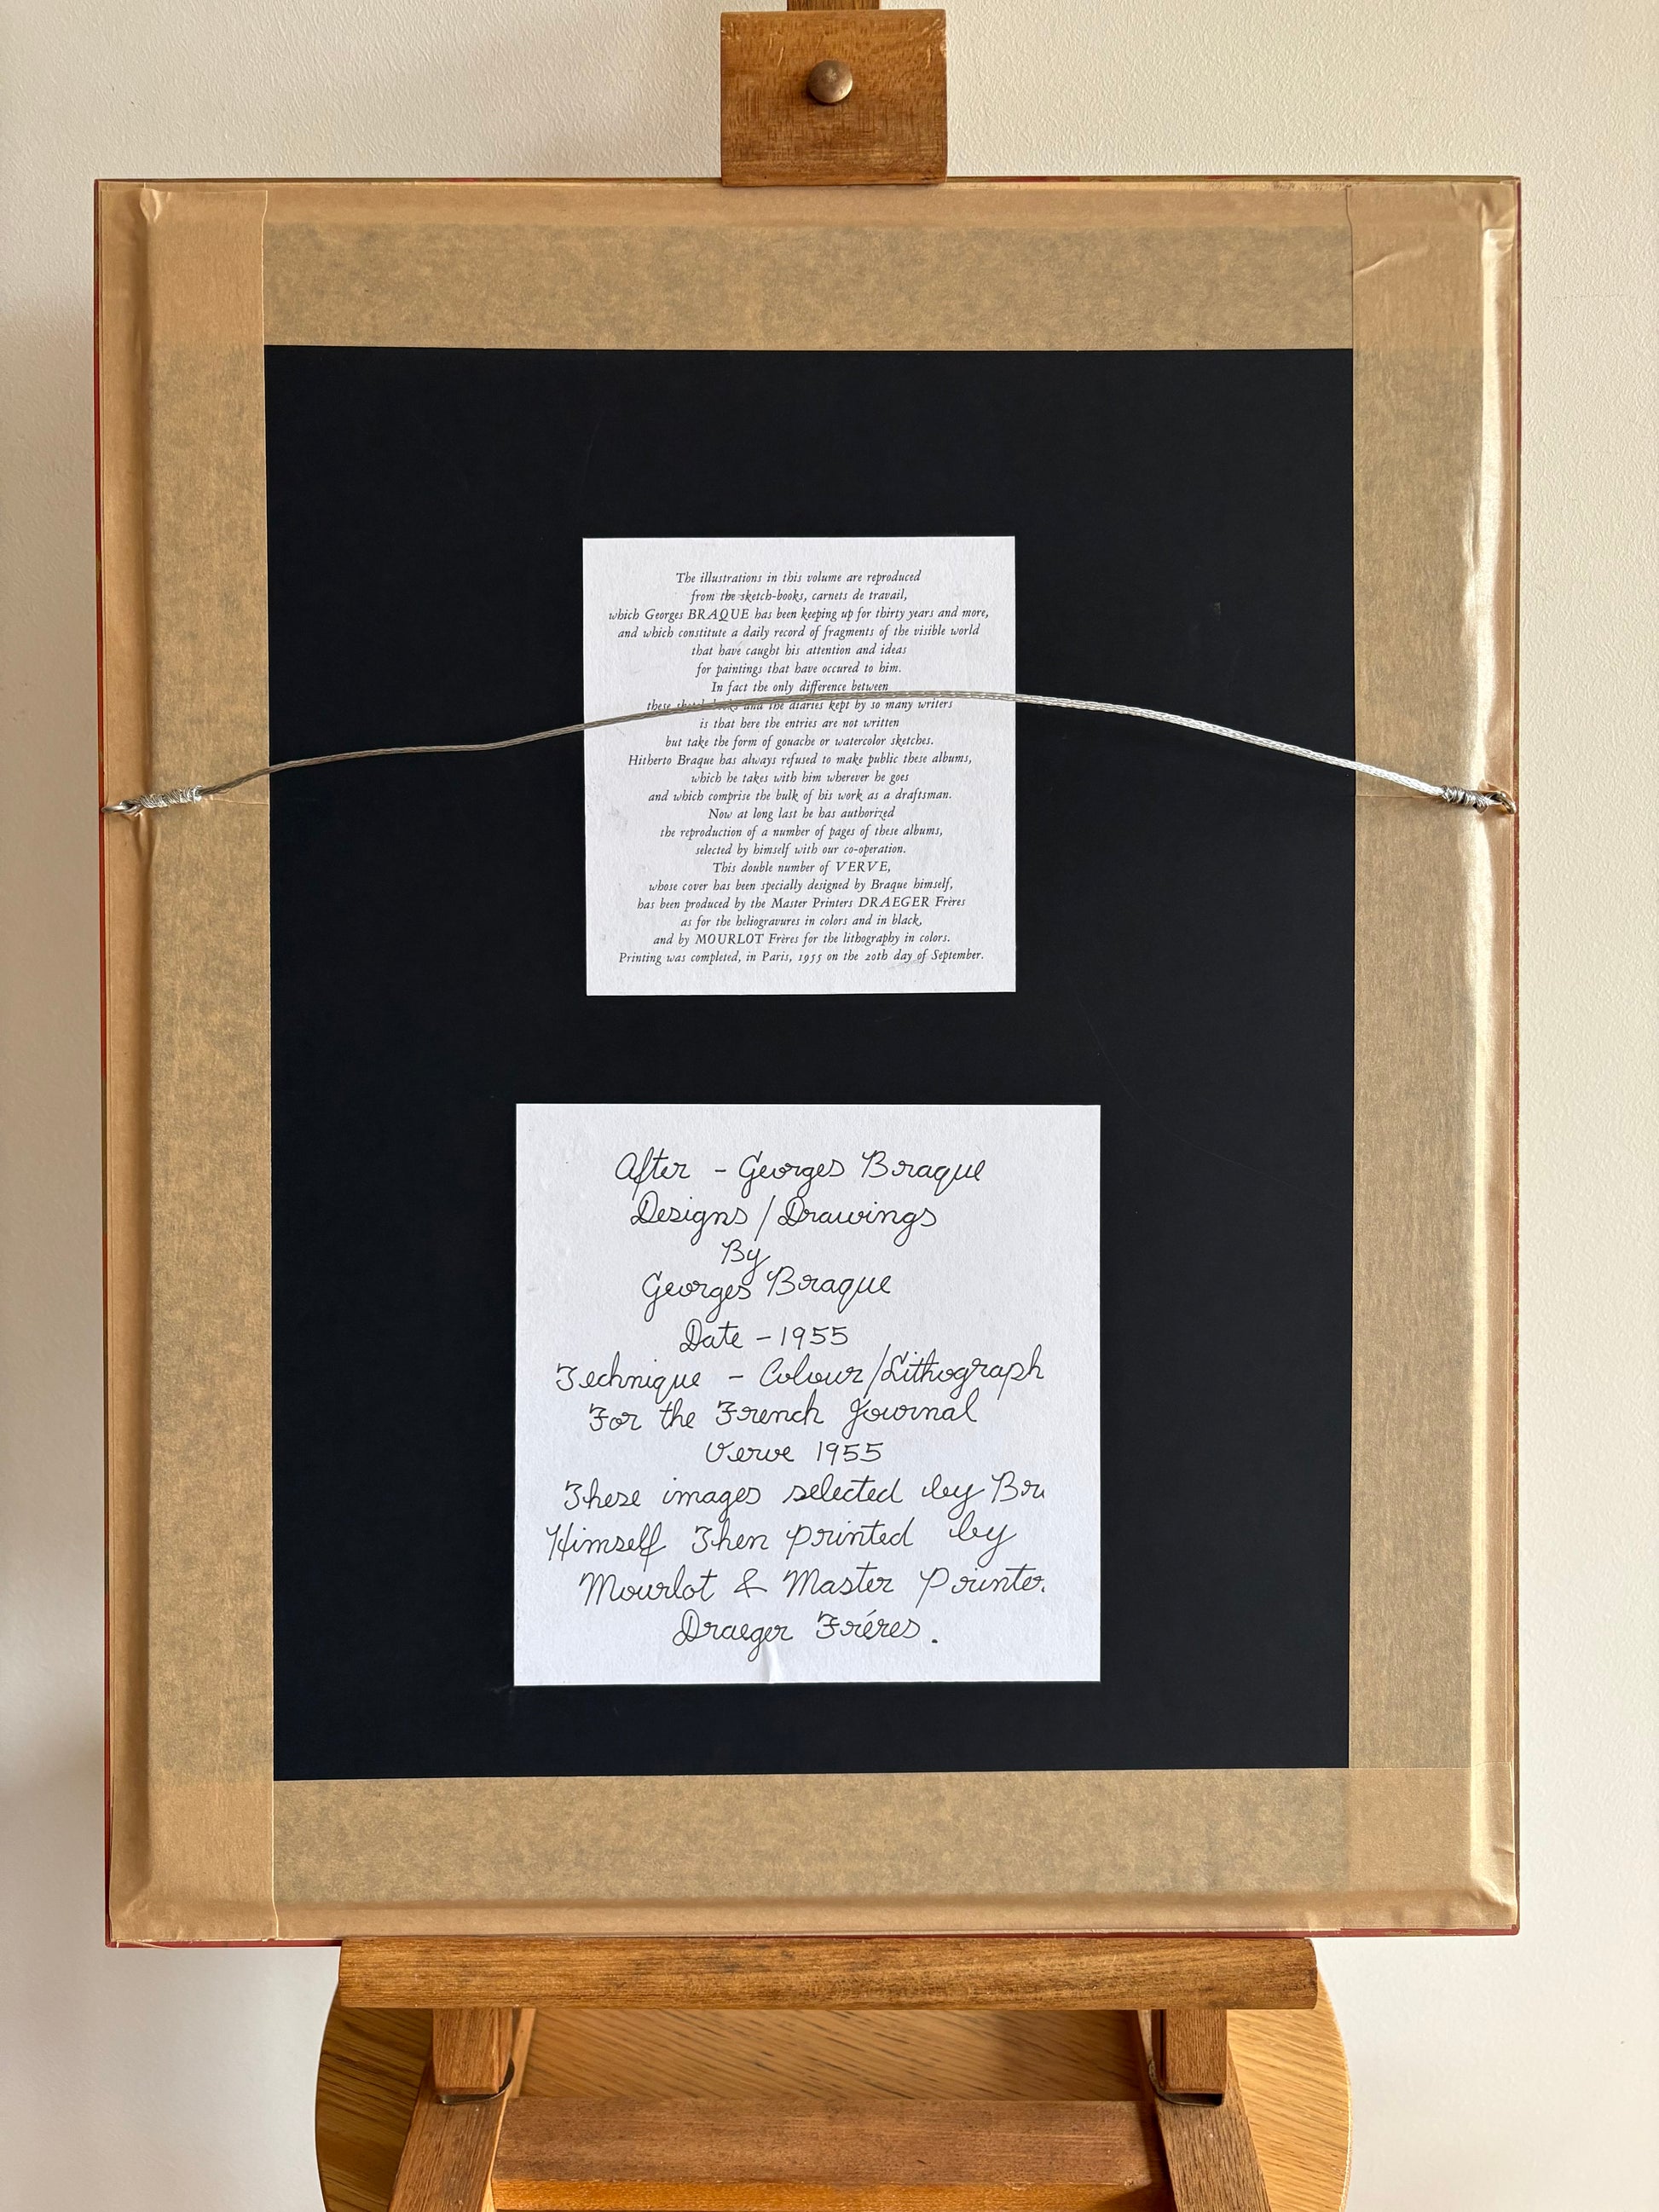 The illustrations in this volume are reproduced
from the sketch-books, carnets de travail,
which Georges BRAQUE has been keeping up for thirty years and more,
and which constitute a daily record of fragments of the visible world
that have caught his attention and ideas
for paintings that have occured to him.
In fact the only difference between
these sketch-books and the diaries kept by so many writers
is that here the entries are not written
but take the form of gouache or watercolor sketches.
Hitherto Braque has always refused to make public these albums,
which he takes with him wherever he goes
and which comprise the bulk of his work as a draftsman.
Now at long last he has authorized
the reproduction of a number of pages of these albums,
selected by himself with our co-operation.
This double number of VERVE,
whose cover has been specially designed by Braque himself,
has been produced by the Master Printers DRAEGER Frères
as for the heliogravures in colors and in black,
and by MOURLOT Frères for the lithography in colors.
Printing was completed, in Paris, 1955 on the 20th day of September.
After - Georges Braque
Designs / Drawings
By
Georges Braque
Date - 1955
Technique - Colour/Lithograph
For the French Journal
Verve 1955
These images selected by Bra
Himself Then printed by
Mourlot & Master Printer
Draeger Fréres.